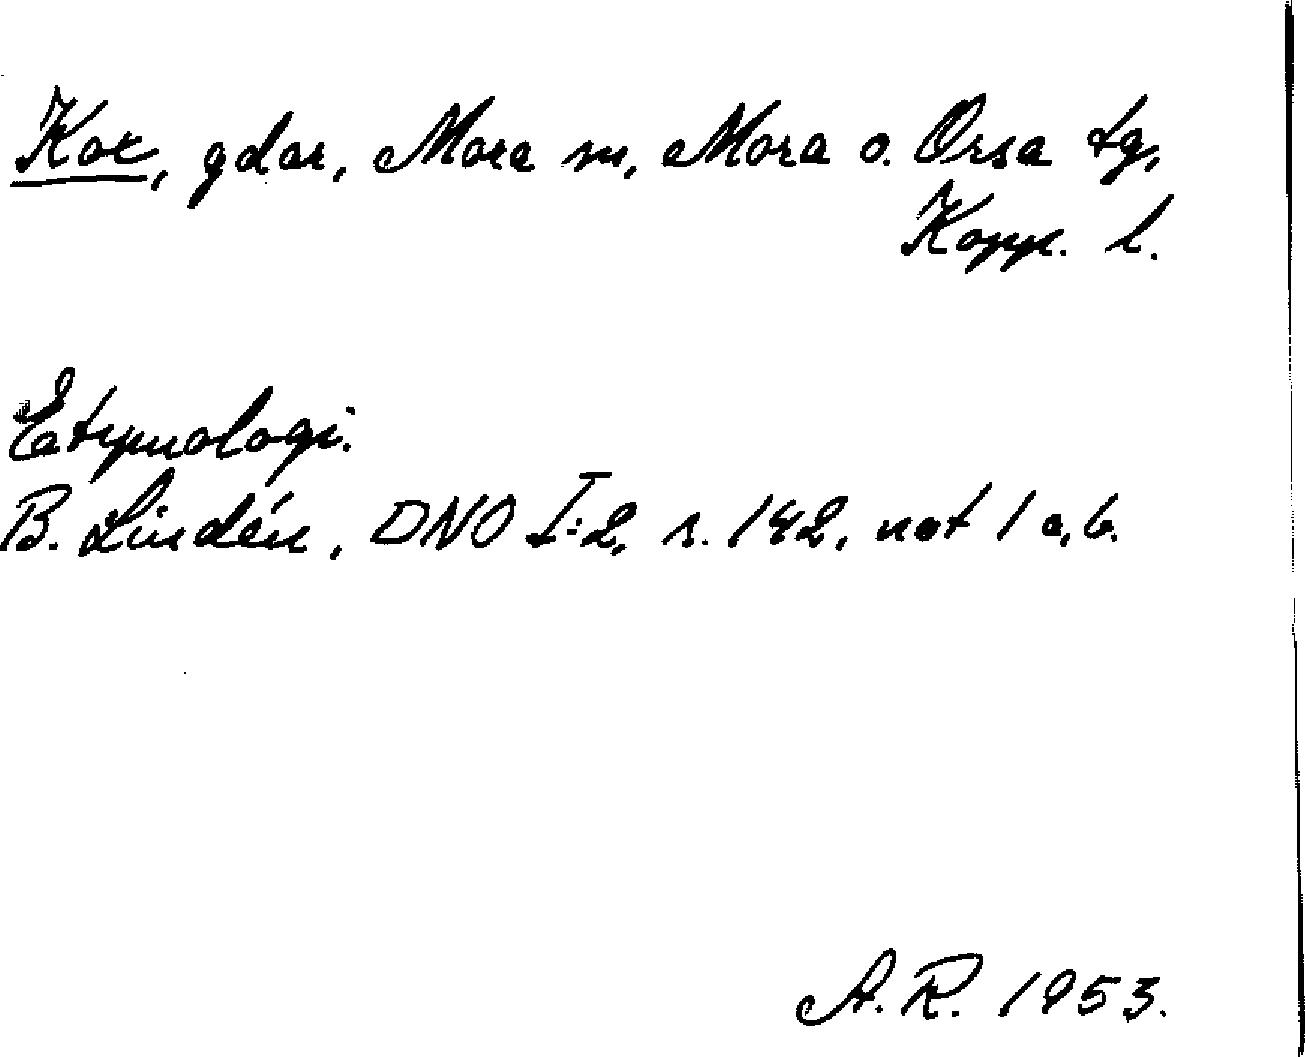 Kok, gdar, Mora sn, Mora o. Orsa tg,
Kopp. l.
Etymologi.
B. Lindén, DNO I:2, s. 142, not 1 a, b.
A. R. 1953.